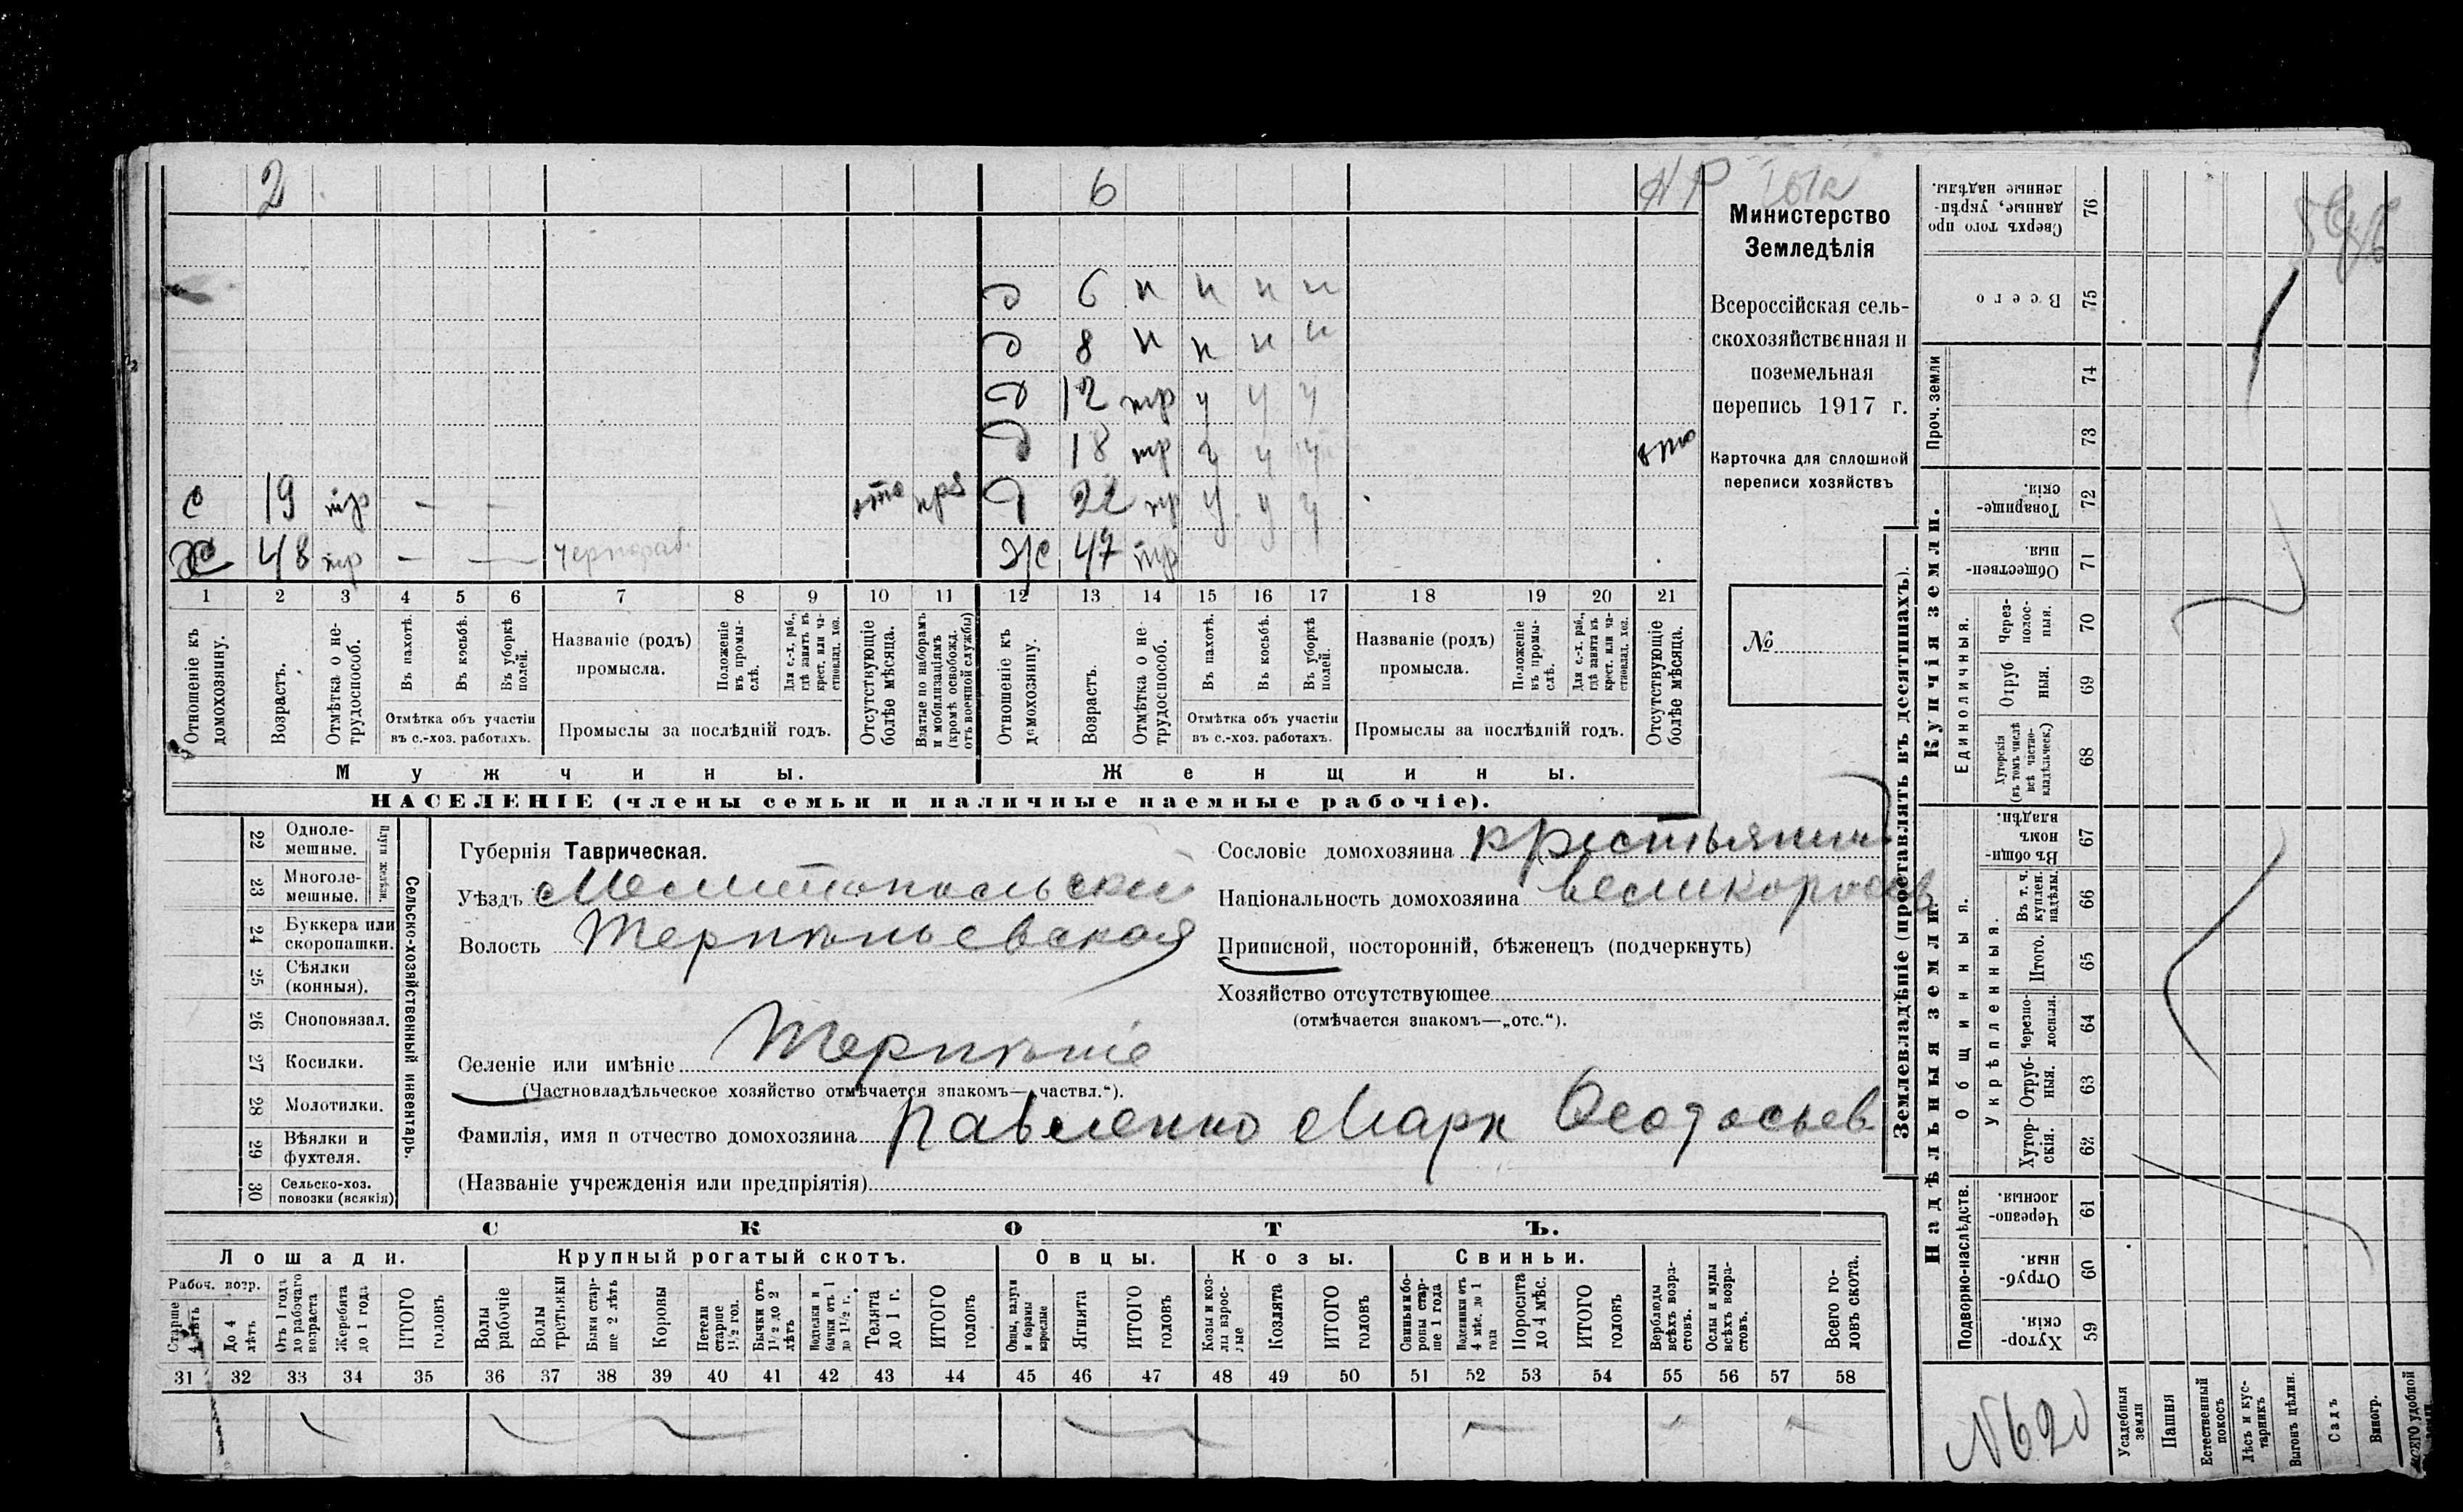 2 6 НР
д 6 н н н н
д 8 н н н н
д 12 тр у у у
д 18 тр у у у отс
с 19 тр — — д 22 тр у у у
х 48 тр — — чернораб. ж 47 тр
1 2 3 4 5 6 7 8 9 10 11 12 13 14 15 16 17 18 19 20 21
Отношеніе къ домохозяину.
Возрастъ.
Отмѣтка о не-трудоспособ.
Въ пахотѣ.
Въ косьбѣ.
Въ уборкѣ полей.
Отмѣтка объ участіи въ с.-хоз. работахъ.
Названіе (родъ) промысла.
Положеніе въ промы-слѣ.
Для с.-х. раб., гдѣ занятъ въ крест. или ча-стновлад. хоз.
Промыслы за послѣдній годъ.
Отсутствующіе болѣе мѣсяца.
Взятые по наборамъ и мобилизаціямъ (кромѣ освобожд. отъ военной службы)
Отношеніе къ домохозяину.
Возрастъ.
Отмѣтка о не-трудоспособ.
Въ пахотѣ.
Въ косьбѣ.
Въ уборкѣ полей.
Отмѣтка объ участіи въ с.-хоз. работахъ.
Названіе (родъ) промысла.
Положеніе въ промы-слѣ.
Для с.-х. раб., гдѣ занята въ крест. или ча-стновлад. хоз.
Промыслы за послѣдній годъ.
Отсутствующіе болѣе мѣсяца.
Мужчины. Женщины.
НАСЕЛЕНІЕ (члены семьи и наличные наемные рабочіе).
Министерство
Земледѣлія
Всероссійская сель-
скохозяйственная и
поземельная
перепись 1917 г.
Карточка для сплошной
переписи хозяйствъ
№
22 Одноле-мешные.
23 Многоле-мешные.
Плуги желѣзн.
24 Буккера или скоропашки.
25 Сѣялки (конныя).
26 Сноповязал.
27 Косилки.
28 Молотилки.
29 Вѣялки и фухтеля.
30 Сельско-хоз. повозки (всякія)
Сельско-хозяйственный инвентарь.
Губернія Таврическая.
Уѣздъ Мелитопольскій
Волость Терпѣньевская
Селеніе или имѣніе Терпѣніе
(Частновладѣльческое хозяйство отмѣчается знакомъ—„частвл.“).
Фамилія, имя и отчество домохозяина Павленко Маркъ Ѳеодосьев
(Названіе учрежденія или предпріятія)
Сословіе домохозяина крестьянинъ
Національность домохозяина великороссъ
Приписной, посторонній, бѣженецъ (подчеркнуть)
Хозяйство отсутствующее
(отмѣчается знакомъ—„отс.“).
СКОТЪ.
Лошади. Крупный рогатый скотъ. Овцы. Козы. Свиньи.
Рабоч. возр.
Старше 4 лѣтъ
До 4 лѣтъ
Отъ 1 года до рабочаго возраста
Жеребята до 1 года
ИТОГО головъ
Волы рабочіе
Волы третьяки
Быки стар-ше 2 лѣтъ
Коровы
Нетели старше 1½ год.
Бычки отъ 1½ до 2 лѣтъ
Подтелки и бычки отъ 1 до 1½ г.
Телята до 1 г.
ИТОГО головъ
Овцы, валухи и бараны взрослые
Ягнята
ИТОГО головъ
Козы и коз-лы взрос-лые
Козлята
ИТОГО головъ
Свиньи и бо-ровы стар-ше 1 года
Подсвинки отъ 4 мѣс. до 1 года
Поросята до 4 мѣс.
ИТОГО головъ
Верблюды всѣхъ возра-стовъ.
Ослы и мулы всѣхъ возра-стовъ.
Всего го-ловъ скота.
31 32 33 34 35 36 37 38 39 40 41 42 43 44 45 46 47 48 49 50 51 52 53 54 55 56 57 58
Землевладѣніе (проставлять въ десятинахъ).
Купчія земли.
Надѣльныя земли.
Проч. земли
Единоличныя.
Общинныя.
Укрѣпленныя.
Подворно-наслѣдств.
76 Сверхъ того про данные, укрѣп-ленные надѣлы.
75 Всего
74
73
72 Товарище-скія.
71 Обществен-ныя.
70 Через-полос-ныя.
69 Отруб ныя.
68 Хуторскія (въ томъ числѣ всѣ частно-владѣльческ.)
67 Въ общи-номъ владѣн.
66 Въ т. ч. куплен. надѣлы.
65 Итого.
64 Черезпо-лосныя.
63 Отруб-ныя.
62 Хутор-скія.
61 Черезпо-лосныя.
60 Отруб-ныя.
59 Хутор-скія.
N620
Усадебныя земли
Пашня
Естественный покосъ
Лѣсъ и кус-тарникъ
Выгонъ цѣлин.
Садъ
Виногр.
ВСЕГО удобной